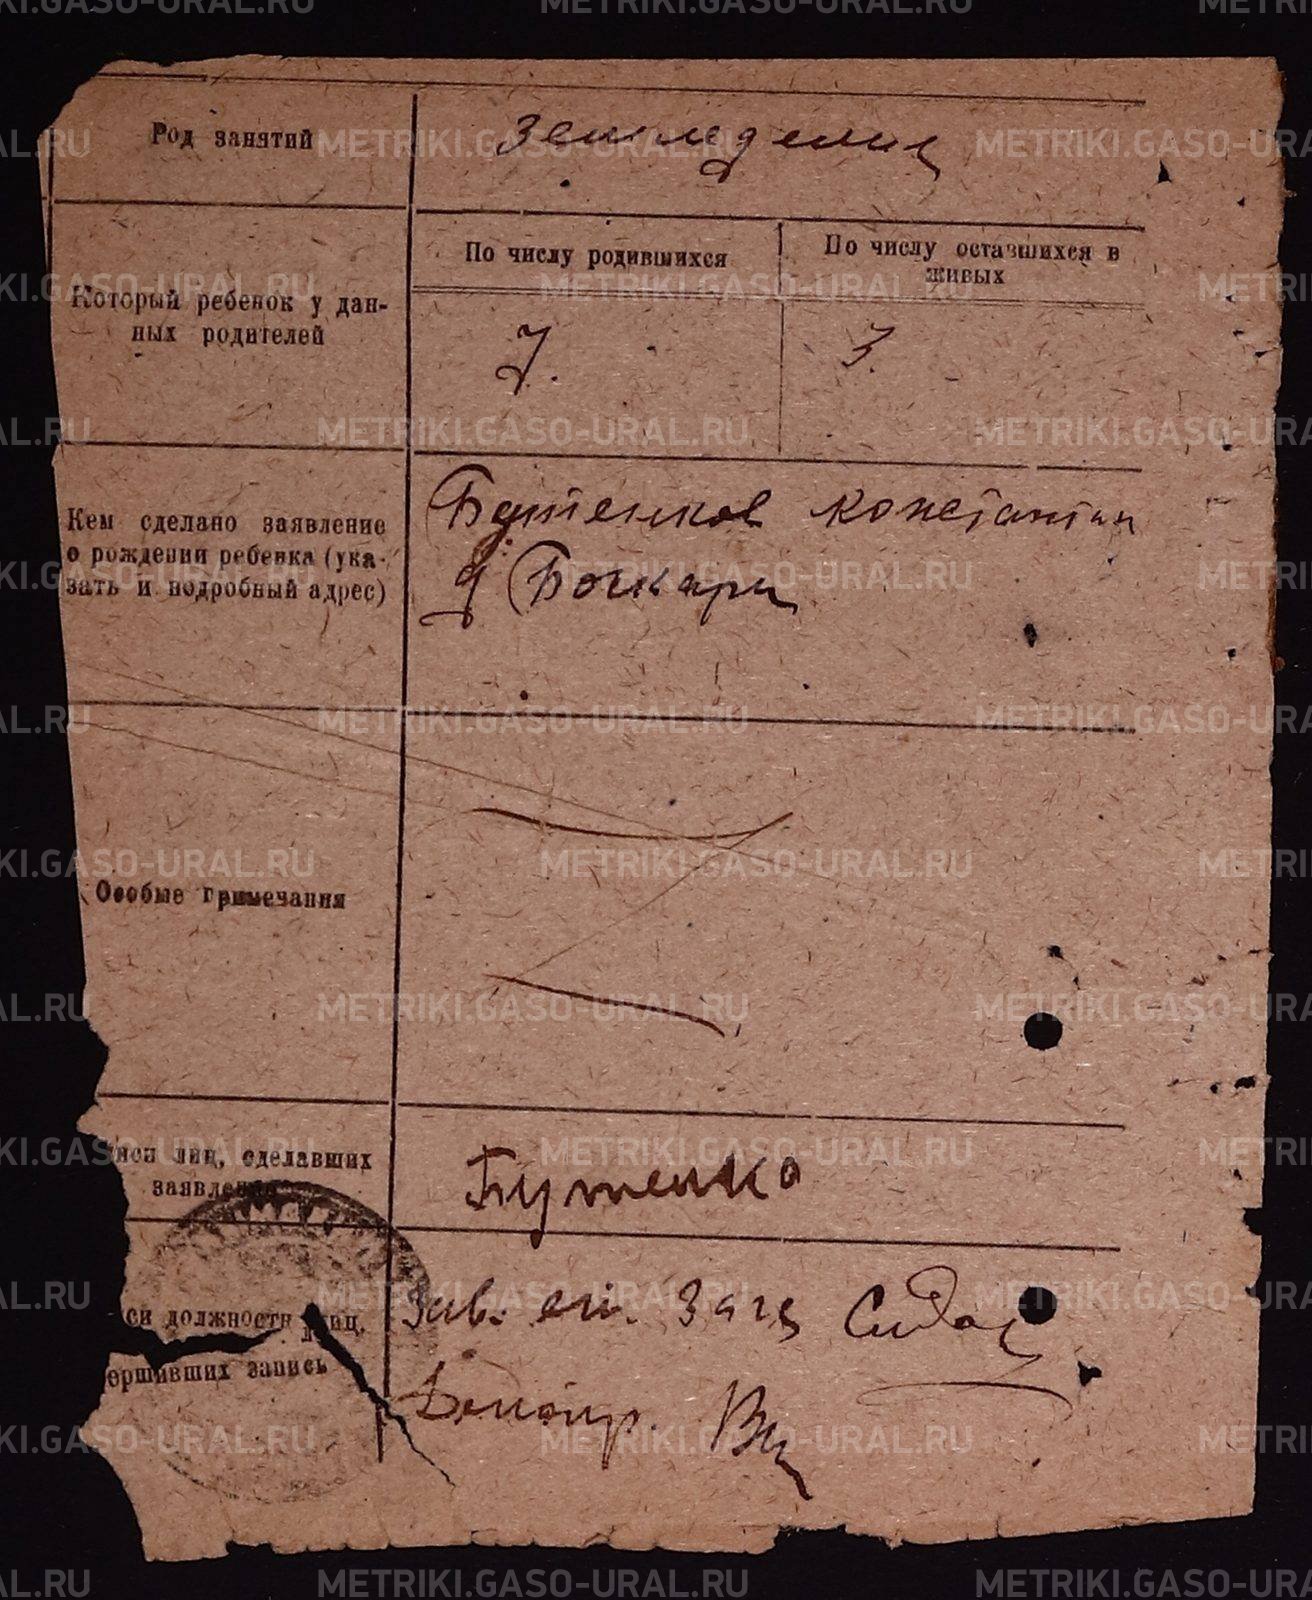 Род занятий
Земледелие
Который ребенок у дан-
ных родителей
По числу родившихся
По числу оставшихся в
живых
7.
3.
Кем сделано заявление
о рождении ребенка (ука-
зать и подробный адрес)
Бутенков Константин
д Бочкари
Особые примечания
лиц, сделавших
заявление
Бутенко
си должности лиц,
ершивших запись
Зав. Загс
METRIKI.GASO-URAL.RU